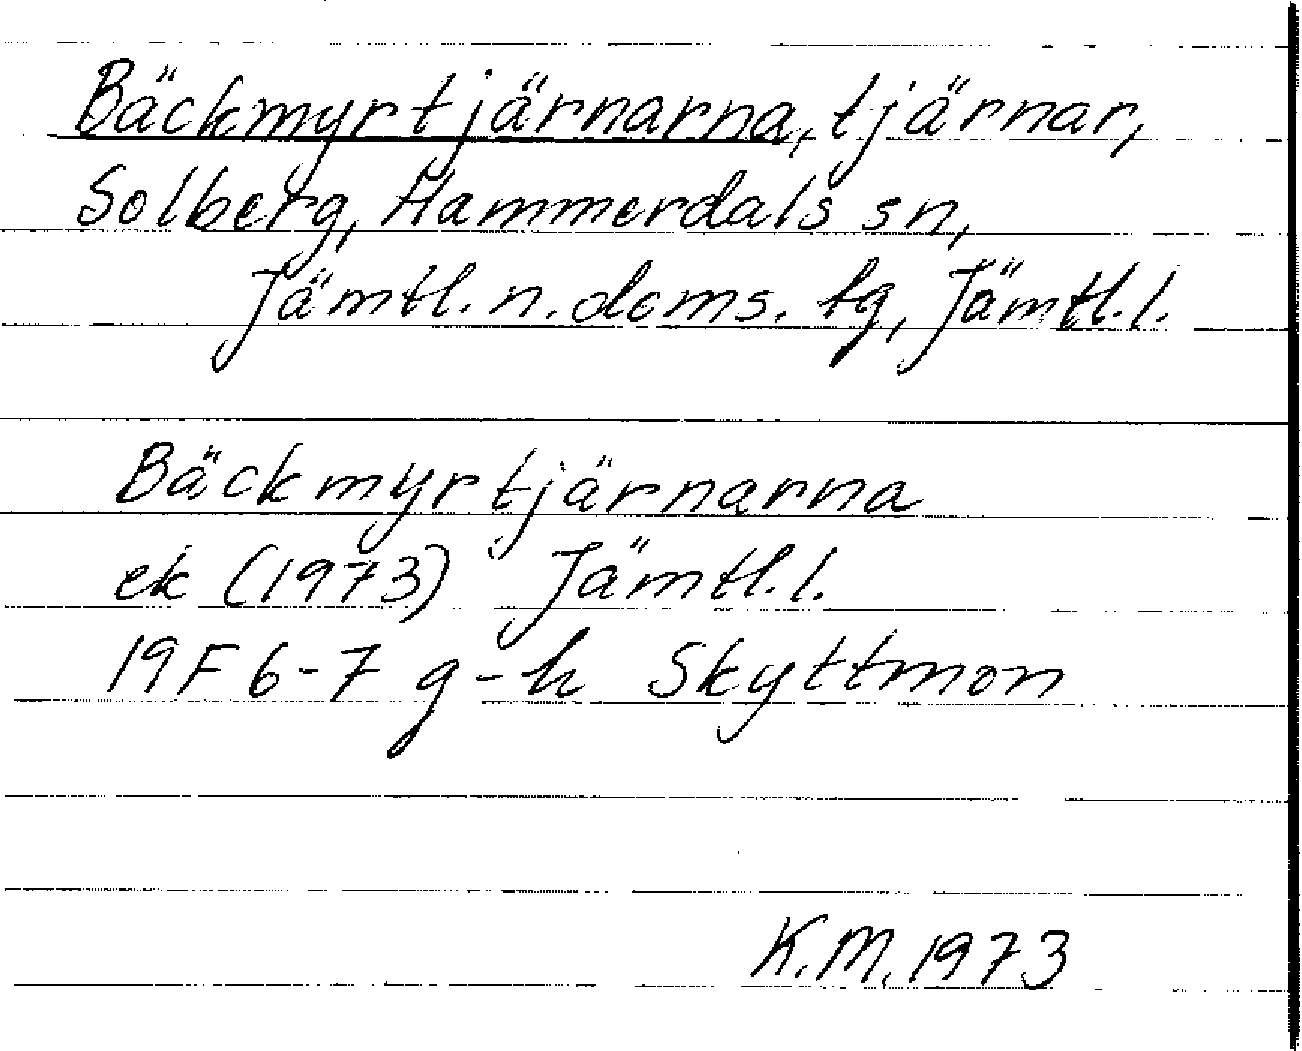 Bäckmyrtjärnarna, tjärnar,
Solberg, Hammerdals sn,
Jämtl. n. doms. tg, Jämtl. l.
Bäckmyrtjärnarna
ek (1973) Jämtl. l.
19F 6-7 g-h Skyttmon
K.M. 1973